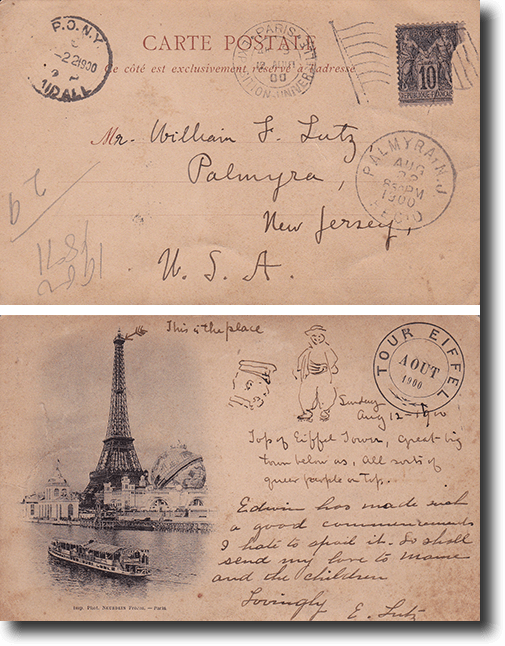 P.O.N.Y.
-22 1900
CARTE POSTALE
PARIS
Ce côté est exclusivement réservé à l'adresse
10
REPUBLIQUE FRANCAISE
Mr. William F. Lutz
Palmyra,
New Jersey,
U. S. A.
PALMYRA, N.J.
AUG
22
1900
REC'D
This is the place
TOUR EIFFEL
AOUT
1900
Sunday
Aug 12-1900
Top of Eiffel Tower, great big
town below us, All sorts of
queer people on top.
Edwin has made such
a good commencement
I hate to spoil it. So shall
send my love to Mame
and the children
Lovingly E. Lutz
Imp. Phot. NEURDEIN Frères. — Paris.